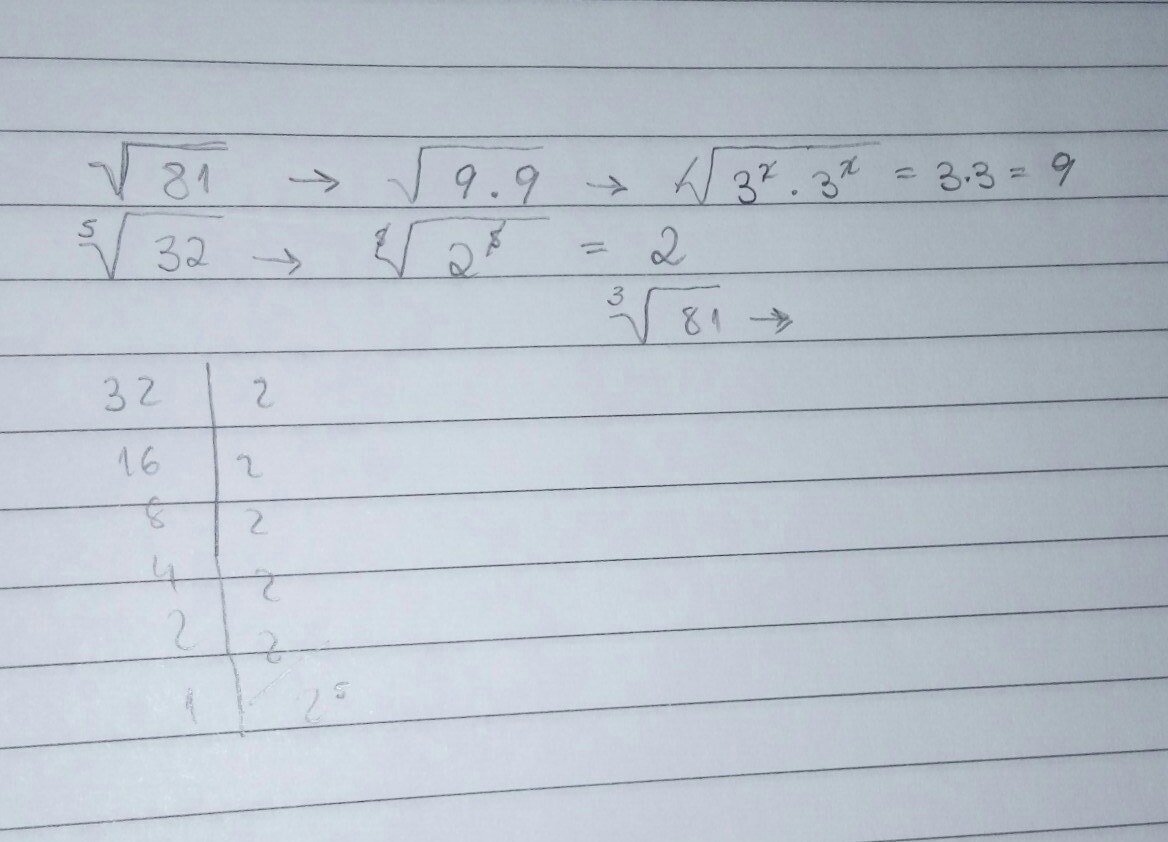 √81 → √9.9 → √3² . 3² = 3.3 = 9
⁵√32 → ⁵√2⁵ = 2
³√81 →
32 | 2
16 | 2
8 | 2
4 | 2
2 | 2
1 | 2⁵